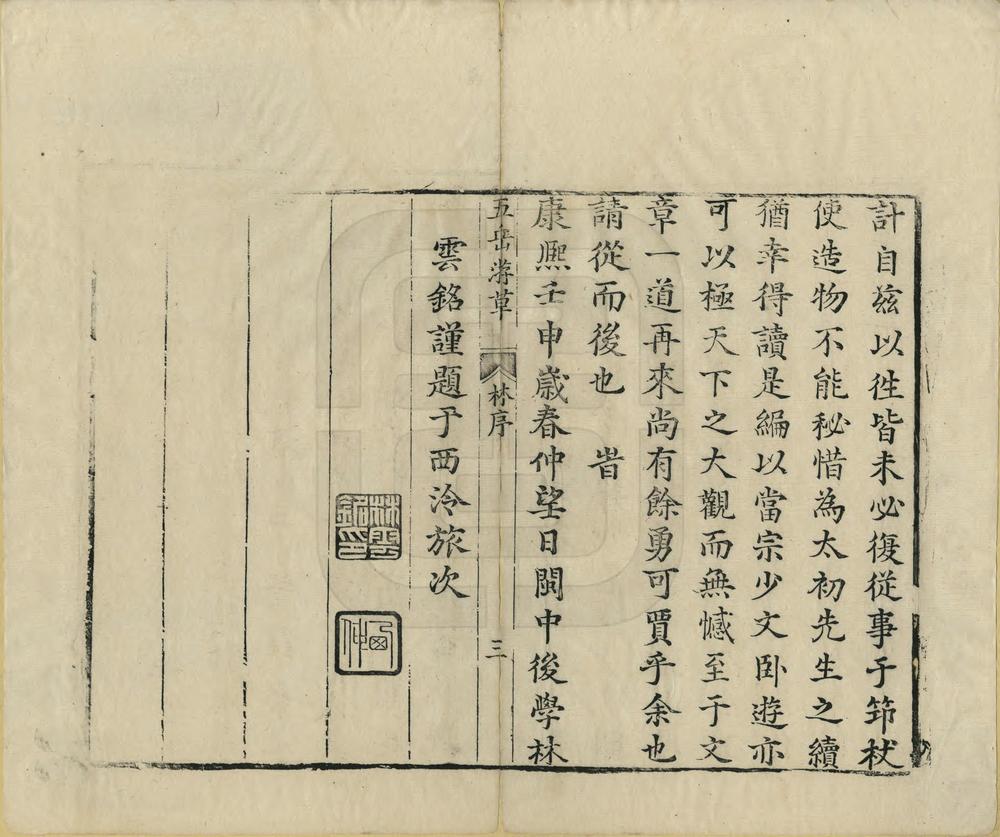 計自茲以徃皆未必復從事于笻杖
便造物不能秘惜為太初先生之續
猶幸得讀是編以當宗少文卧遊亦
可以極天下之大觀而無憾至于文
章一道再來尚有餘勇可賈乎余也
請從而後也　旹
康熈壬申歲春仲望日閩中後學林
五岳游草　林序　三
雲銘謹題于西泠旅次
林雲銘印